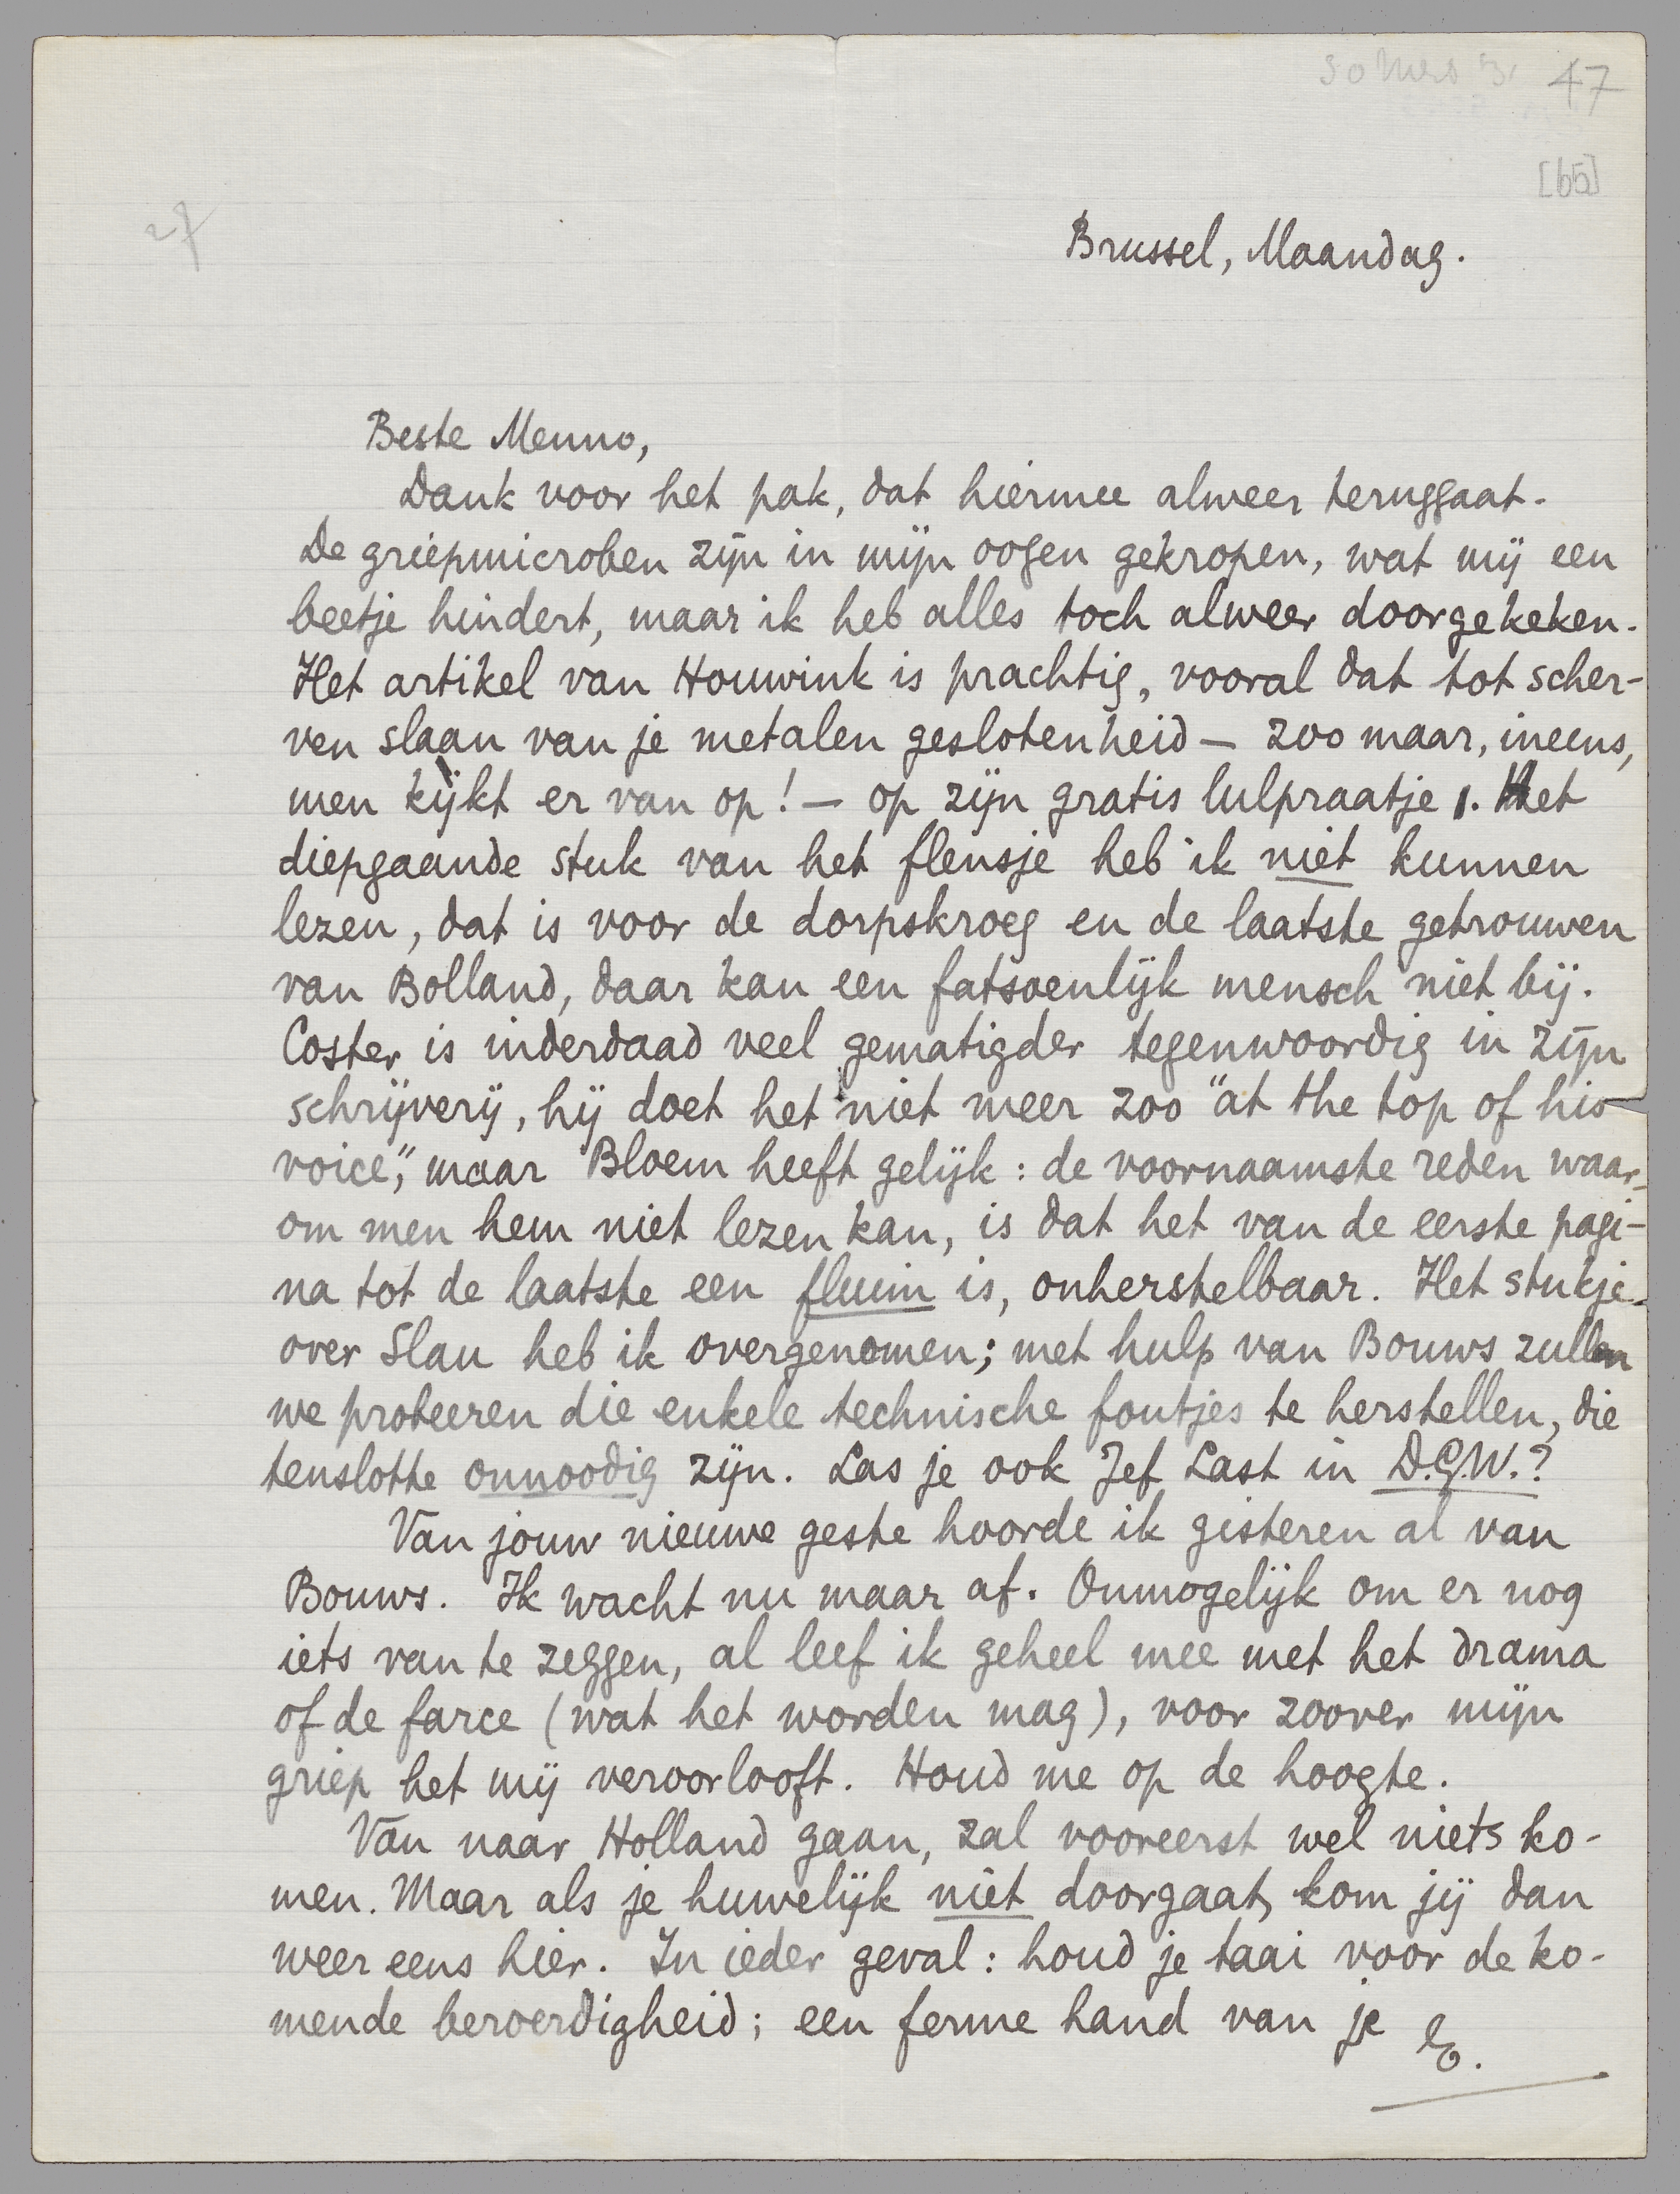 47
[65]
27
Brussel, Maandag.
Beste Menno,
Dank voor het pak, dat hiermee alweer teruggaat.
De griepmicroben zijn in mijn oogen gekropen, wat mij een
beetje hindert, maar ik heb alles toch alweer doorgekeken.
Het artikel van Houwink is prachtig, vooral dat tot scher-
ven slaan van je metalen geslotenheid – zoo maar, ineens,
men kijkt er van op! – op zijn gratis lulpraatje. Het
diepgaande stuk van het flensje heb ik niet kunnen
lezen, dat is voor de dorpskroeg en de laatste getrouwen
van Bolland, daar kan een fatsoenlijk mensch niet bij.
Coster is inderdaad veel gematigder tegenwoordig in zijn
schrijverij, hij doet het niet meer zoo "at the top of his
voice", maar Bloem heeft gelijk: de voornaamste reden waar-
om men hem niet lezen kan, is dat het van de eerste pagi-
na tot de laatste een fluim is, onherstelbaar. Het stukje
over Slau heb ik overgenomen; met hulp van Bouws zullen
we probeeren die enkele technische foutjes te herstellen, die
tenslotte onnoodig zijn. Las je ook Jef Last in D.G.W.?
Van jouw nieuwe geste hoorde ik gisteren al van
Bouws. Ik wacht nu maar af. Onmogelijk om er nog
iets van te zeggen, al leef ik geheel mee met het drama
of de farce (wat het worden mag), voor zoover mijn
griep het mij veroorlooft. Houd me op de hoogte.
Van naar Holland gaan, zal vooreerst wel niets ko-
men. Maar als je huwelijk niet doorgaat, kom jij dan
weer eens hier. In ieder geval: houd je taai voor de ko-
mende beroerdigheid; een ferme hand van je E.